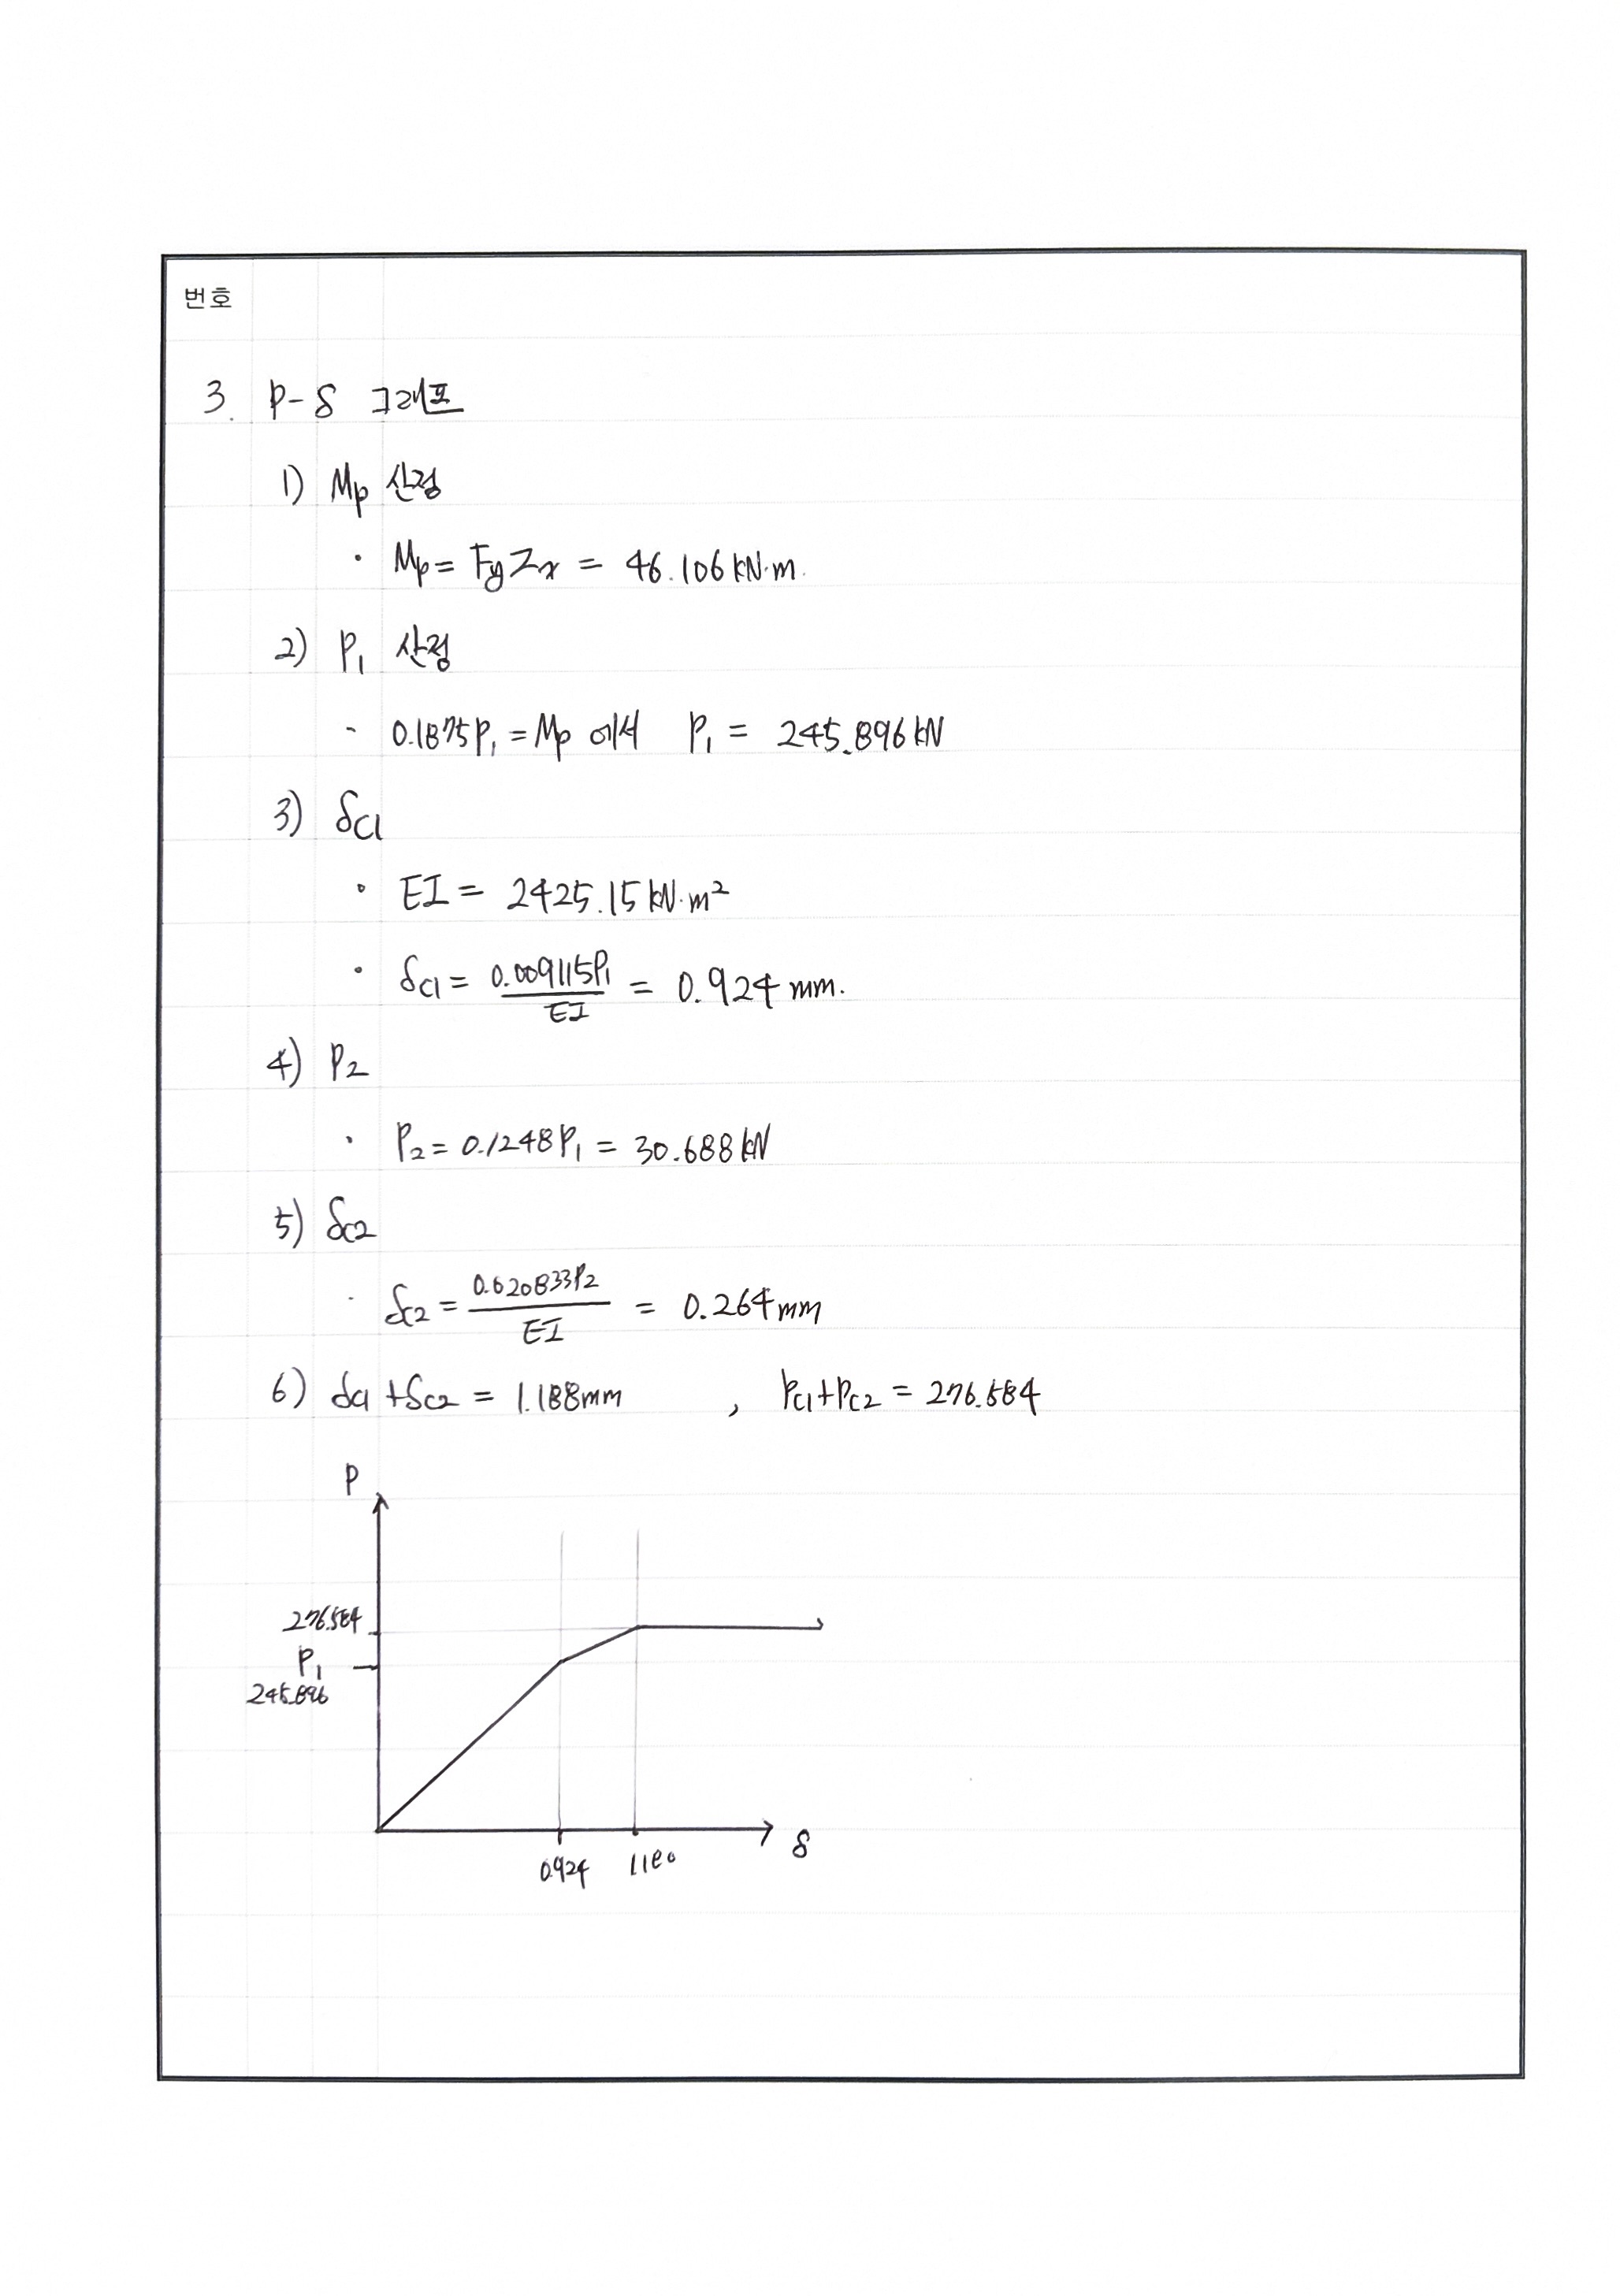 번호
3. P-δ 그래프
1) Mp 산정
· Mp = FyZx = 46.106 kN·m.
2) P₁ 산정
- 0.1875P₁ = Mp 에서 P₁ = 245.896 kN
3) δc1
· EI = 2425.15 kN·m²
· δc1 = 0.009115P₁/EI = 0.924 mm.
4) P₂
· P₂ = 0.1248P₁ = 30.688 kN
5) δc2
· δc2 = 0.020833P₂/EI = 0.264 mm
6) δc1 + δc2 = 1.188mm , Pc1+Pc2 = 276.584
P
276.584
P₁
245.896
δ
0.924